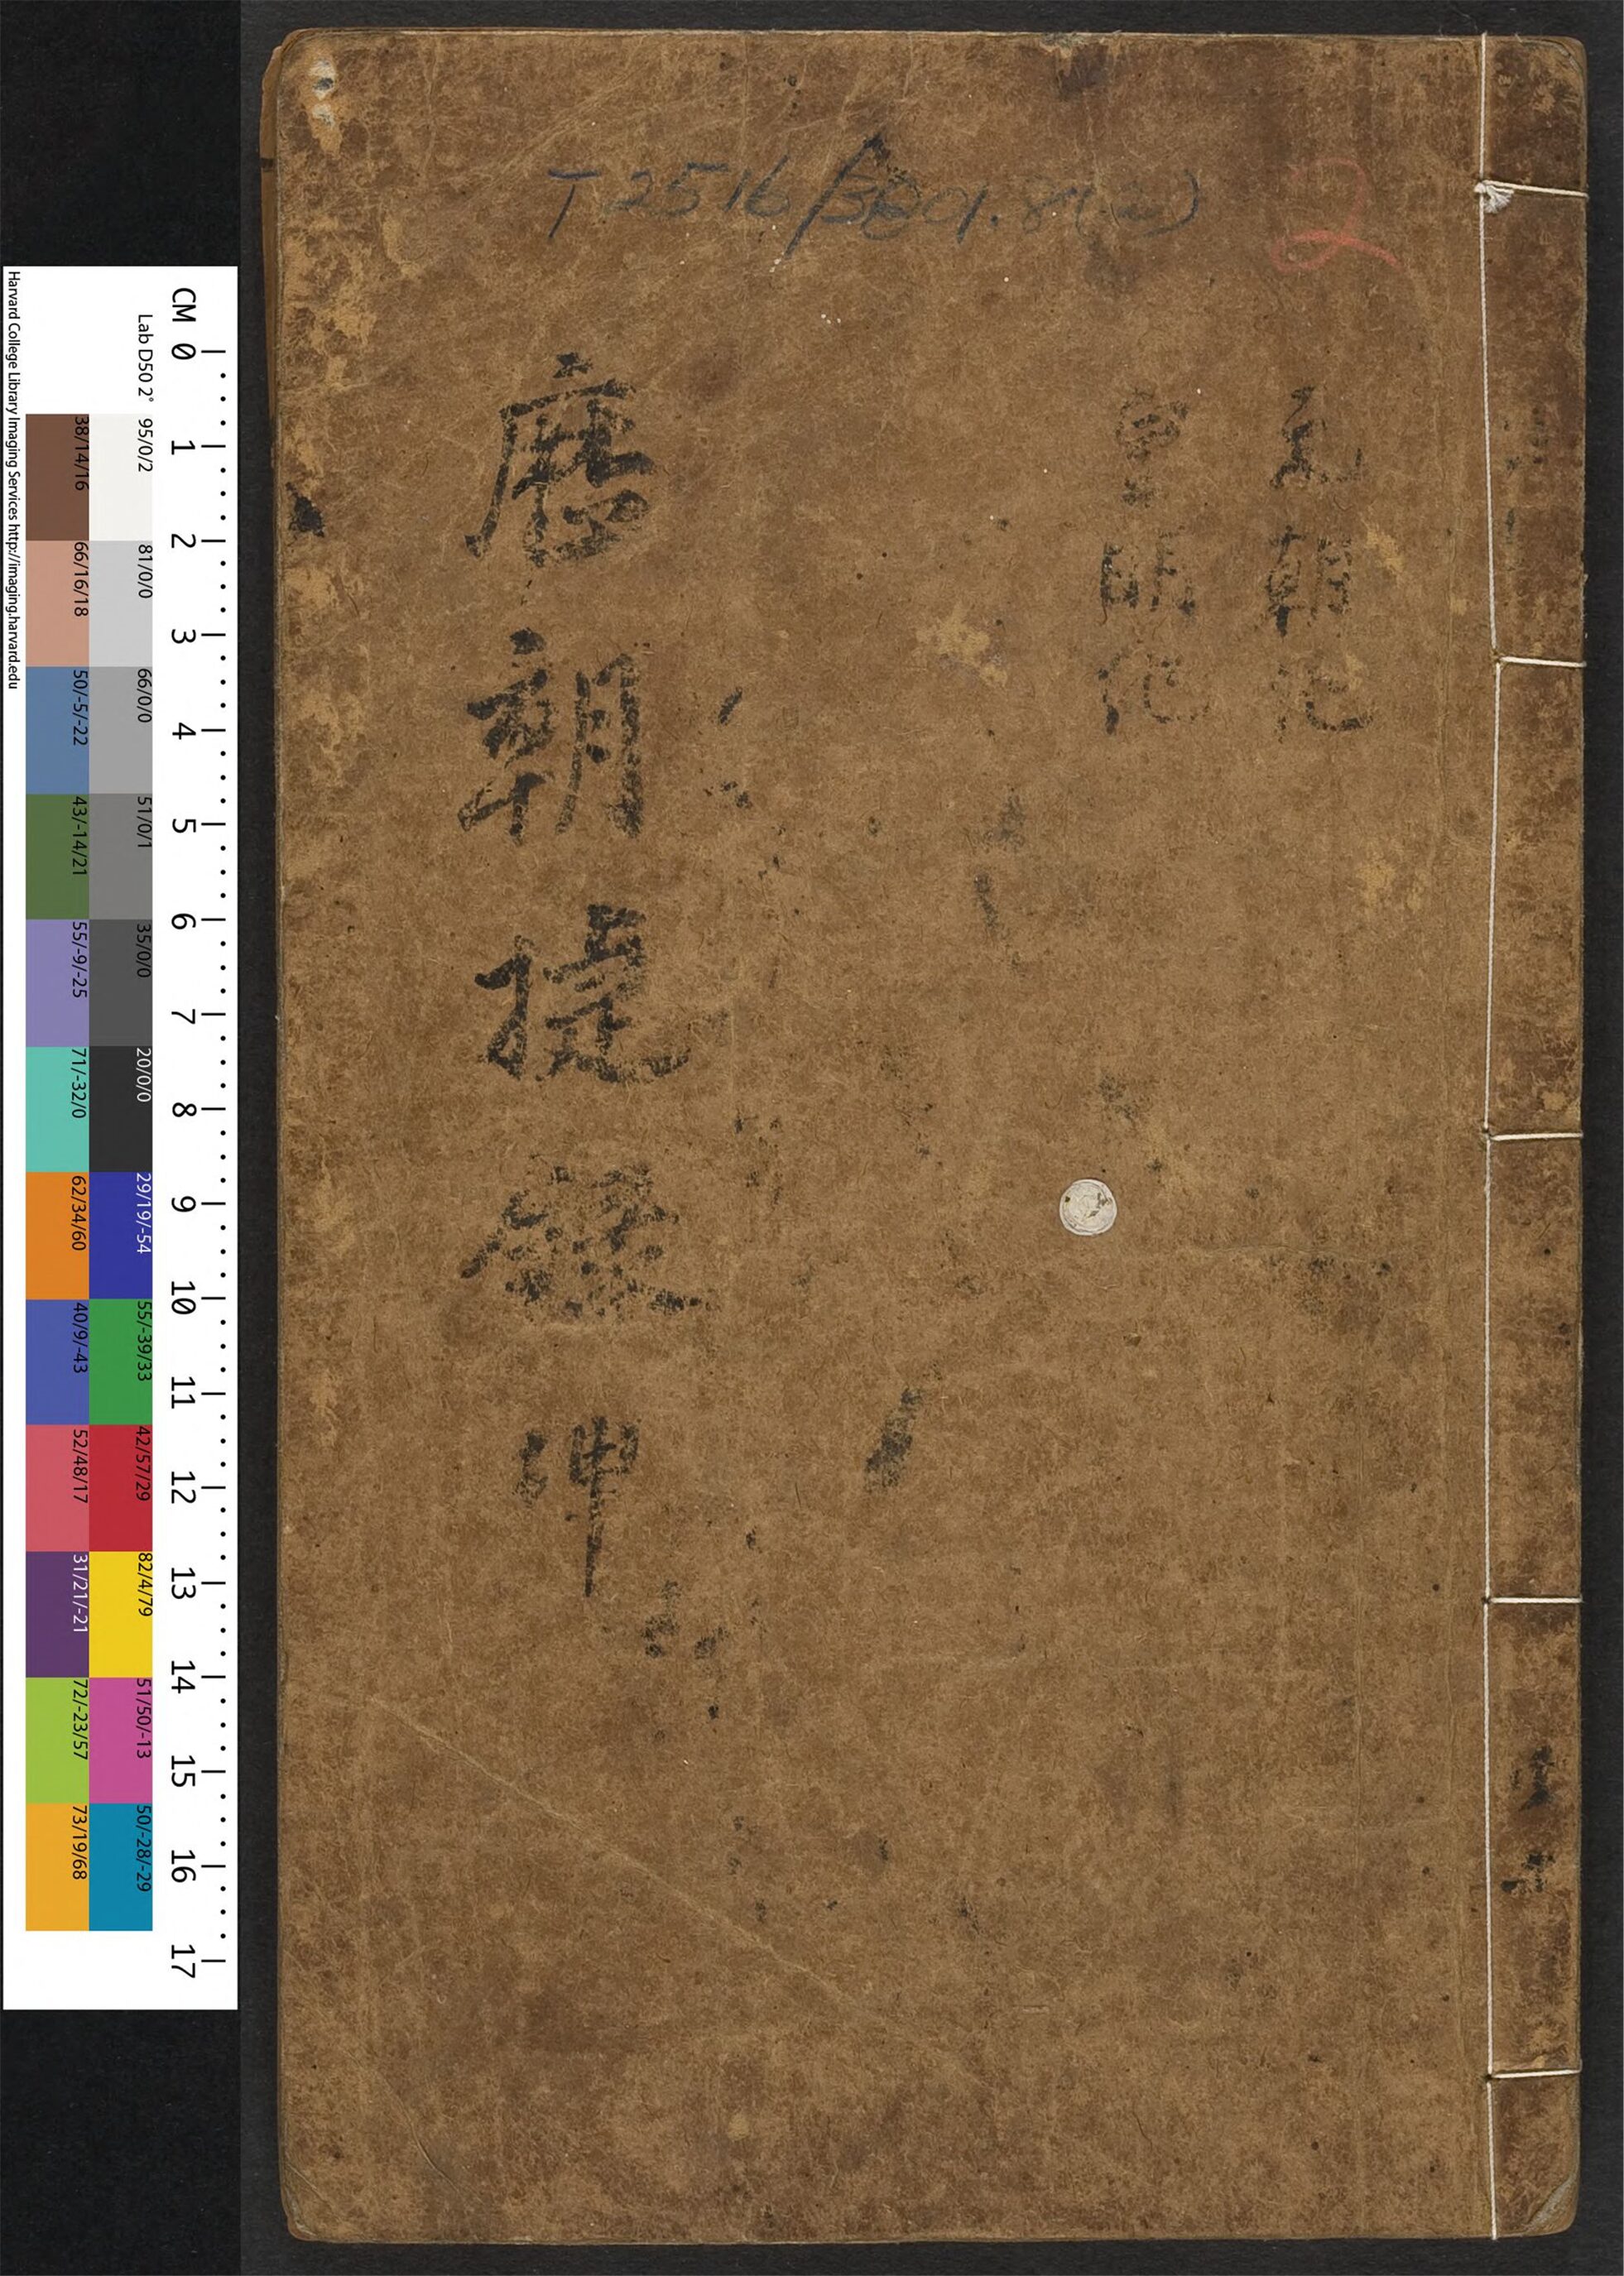 T2516/3201.8(2)
2
元朝紀
皇明紀
歷朝捷錄 坤
CM 0 1 2 3 4 5 6 7 8 9 10 11 12 13 14 15 16 17
Lab D50 2° 95/0/2 81/0/0 66/0/0 51/0/1 35/0/0 20/0/0 29/19/-54 55/-39/33 42/57/29 82/4/79 51/50/-13 50/-28/-29
38/14/16 66/16/18 50/-5/-22 43/-14/21 55/-9/-25 71/-32/0 62/34/60 40/9/-43 52/48/17 31/21/-21 72/-23/57 73/19/68
Harvard College Library Imaging Services http://imaging.harvard.edu